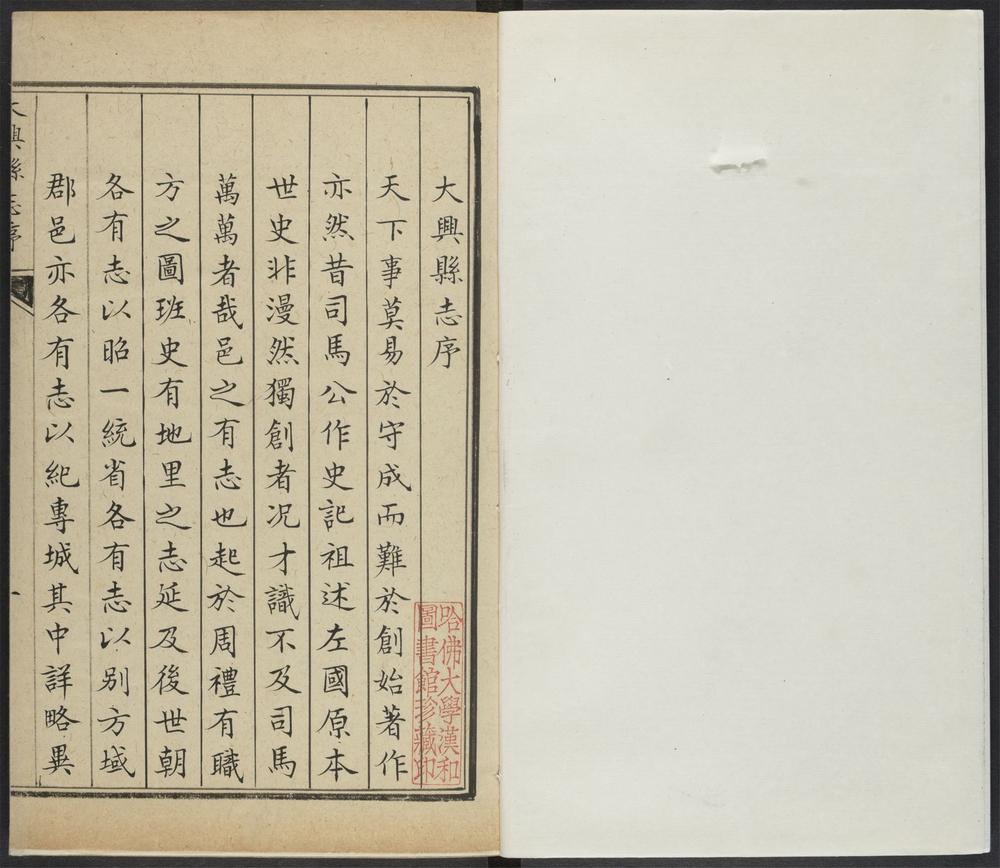 大興縣志序
天下事莫易於守成而難於創始著作
亦然昔司馬公作史記祖述左國原本
世史非漫然獨創者况才識不及司馬
萬萬者哉邑之有志也起於周禮有職
方之圖班史有地里之志延及後世朝
各有志以昭一統省各有志以别方域
郡邑亦各有志以紀專城其中詳略異
大興縣志序
一
哈佛大學漢和
圖書館珍藏印